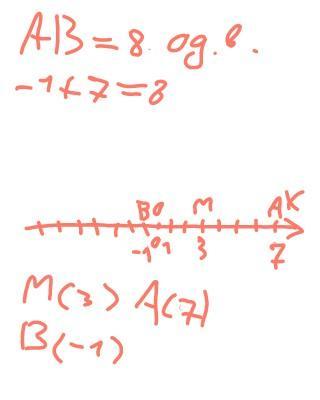 AB = 8. од. в.
-1 + 7 = 8
B 0 M A X
-1 0 1 3 7
M(3) A(7)
B(-1)